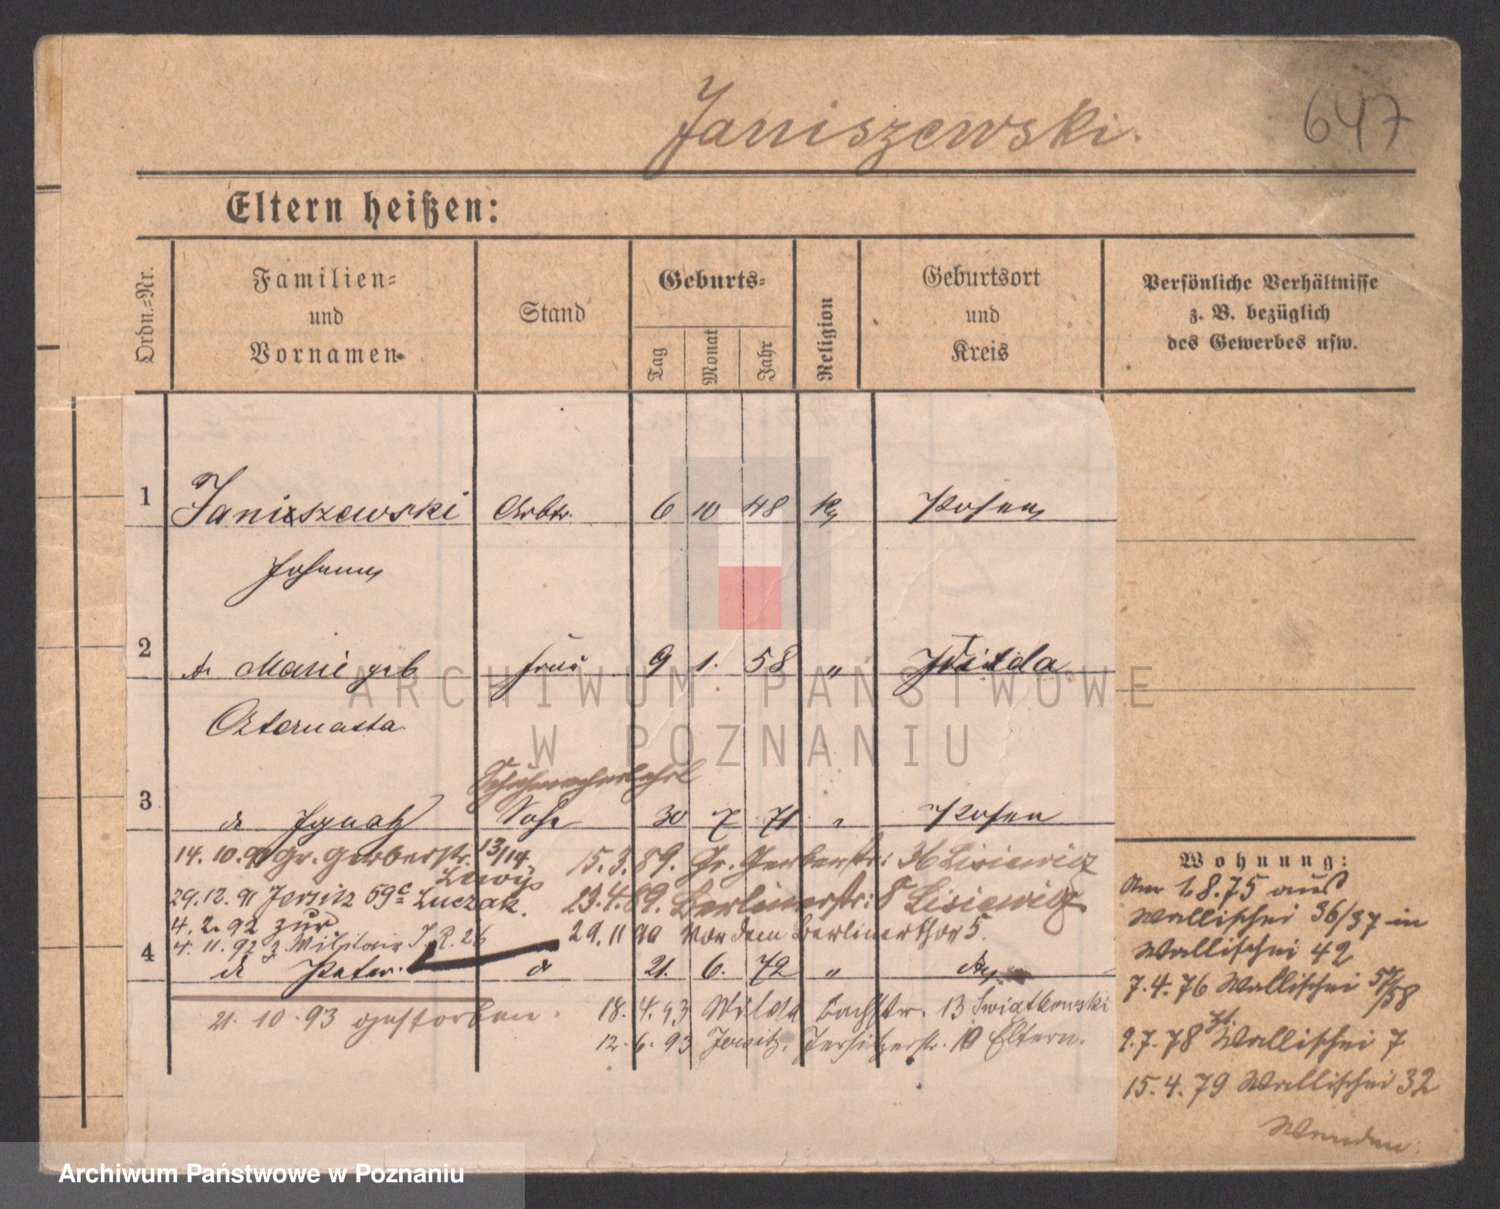 Janiszewski.
647
Eltern heißen:
Ordn.-Nr.
Familien-
und
Vornamen.
Stand
Geburts-
Tag
Monat
Jahr
Religion
Geburtsort
und
Kreis
Persönliche Verhältnisse
z. B. bezüglich
des Gewerbes usw.
1 Janiszewski Arbtr. 6 10 48 Posen
Johann
2 Marie geb Frau 9 1. 58 " Wilda
3 Ignatz Sohn 30 7 71 " Posen
14.10.90 gr. Gerberstr. 13/14
15.3.89. Gr. Gerberstr: 36 Lisiewicz
29.12.91 Jersitz 59c Luczak.
23.4.89. Berlinerstr: 8 Lisiewicz
4.2.92 zur
29.11 90 Vor dem Berlinerthor 5.
4.11.92 z. Militair I.R. 26
4 Peter. 21. 6. 72 "
21.10.93 gestorben.
18.4.93 Wilda Bachstr. 13 Swiątkowski
12.6.93 Jersitz, Jersitzerstr. 10 Eltern.
Wohnung:
Am 1.8.75 aus
Wallischei 36/37 in
Wallischei 42
7.4.76 Wallischei 57/58
2.7.78 Wallischei 7
15.4.79 Wallischei 32
Wenden.
ARCHIWUM PAŃSTWOWE
W POZNANIU
Archiwum Państwowe w Poznaniu